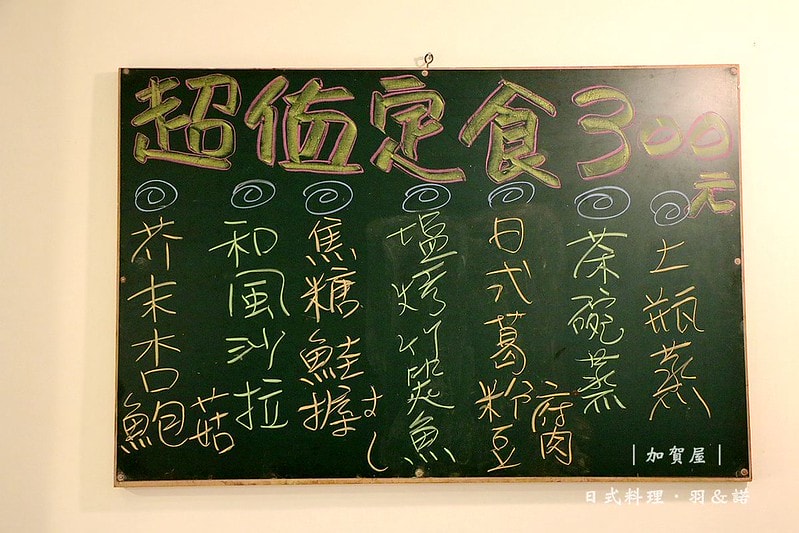 超值定食300元
土瓶蒸
茶碗蒸
日式葛粉豆腐
塩烤竹筴魚
焦糖鮭握すし
和風沙拉
芥末杏鮑菇
|加賀屋|
日式料理・羽&諾